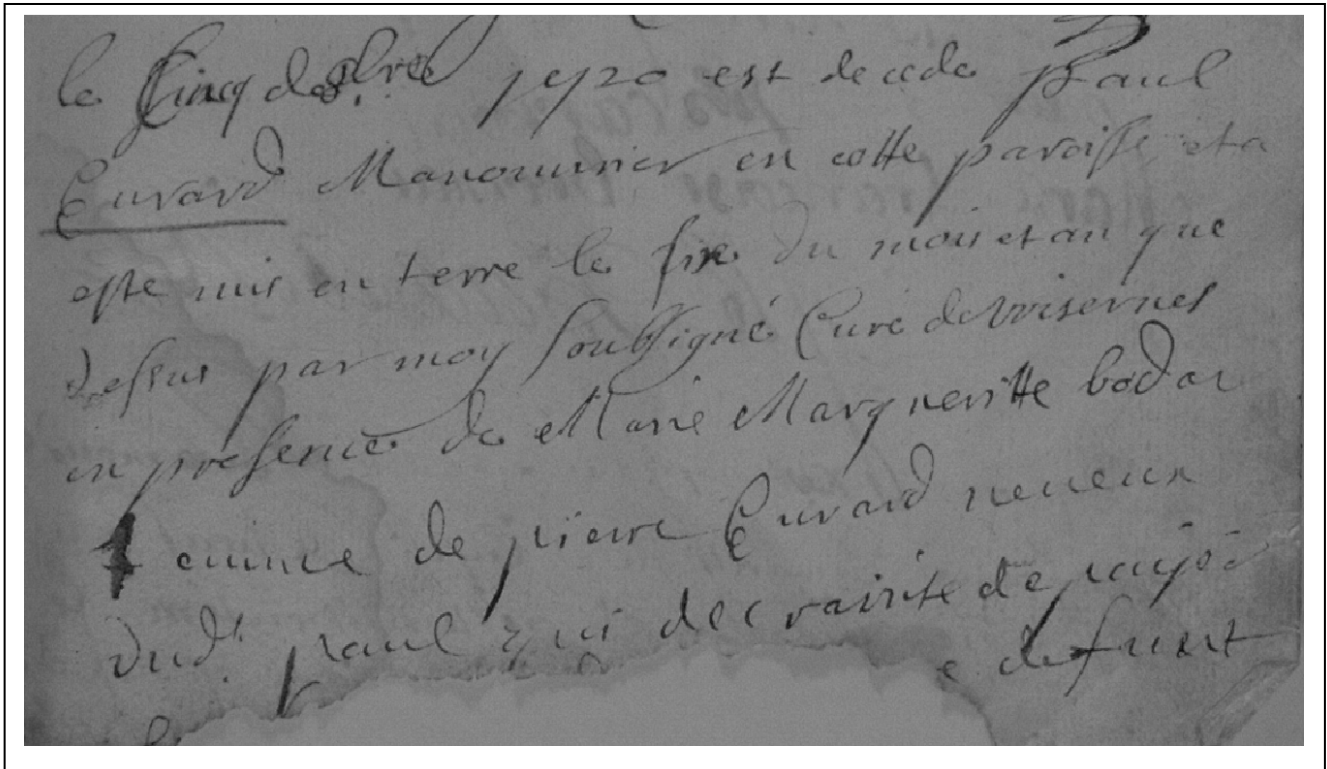 le Cinq de 8bre 1720 est decede Paul
Evrard Manouvrier en cette paroisse et a
esté mis en terre le six du mois et an que
dessus par moy soubsigné Curé de
en presence de Marie Margueritte bodar
femme de pierre Evrard neueux
dud. paul qui de
defunt